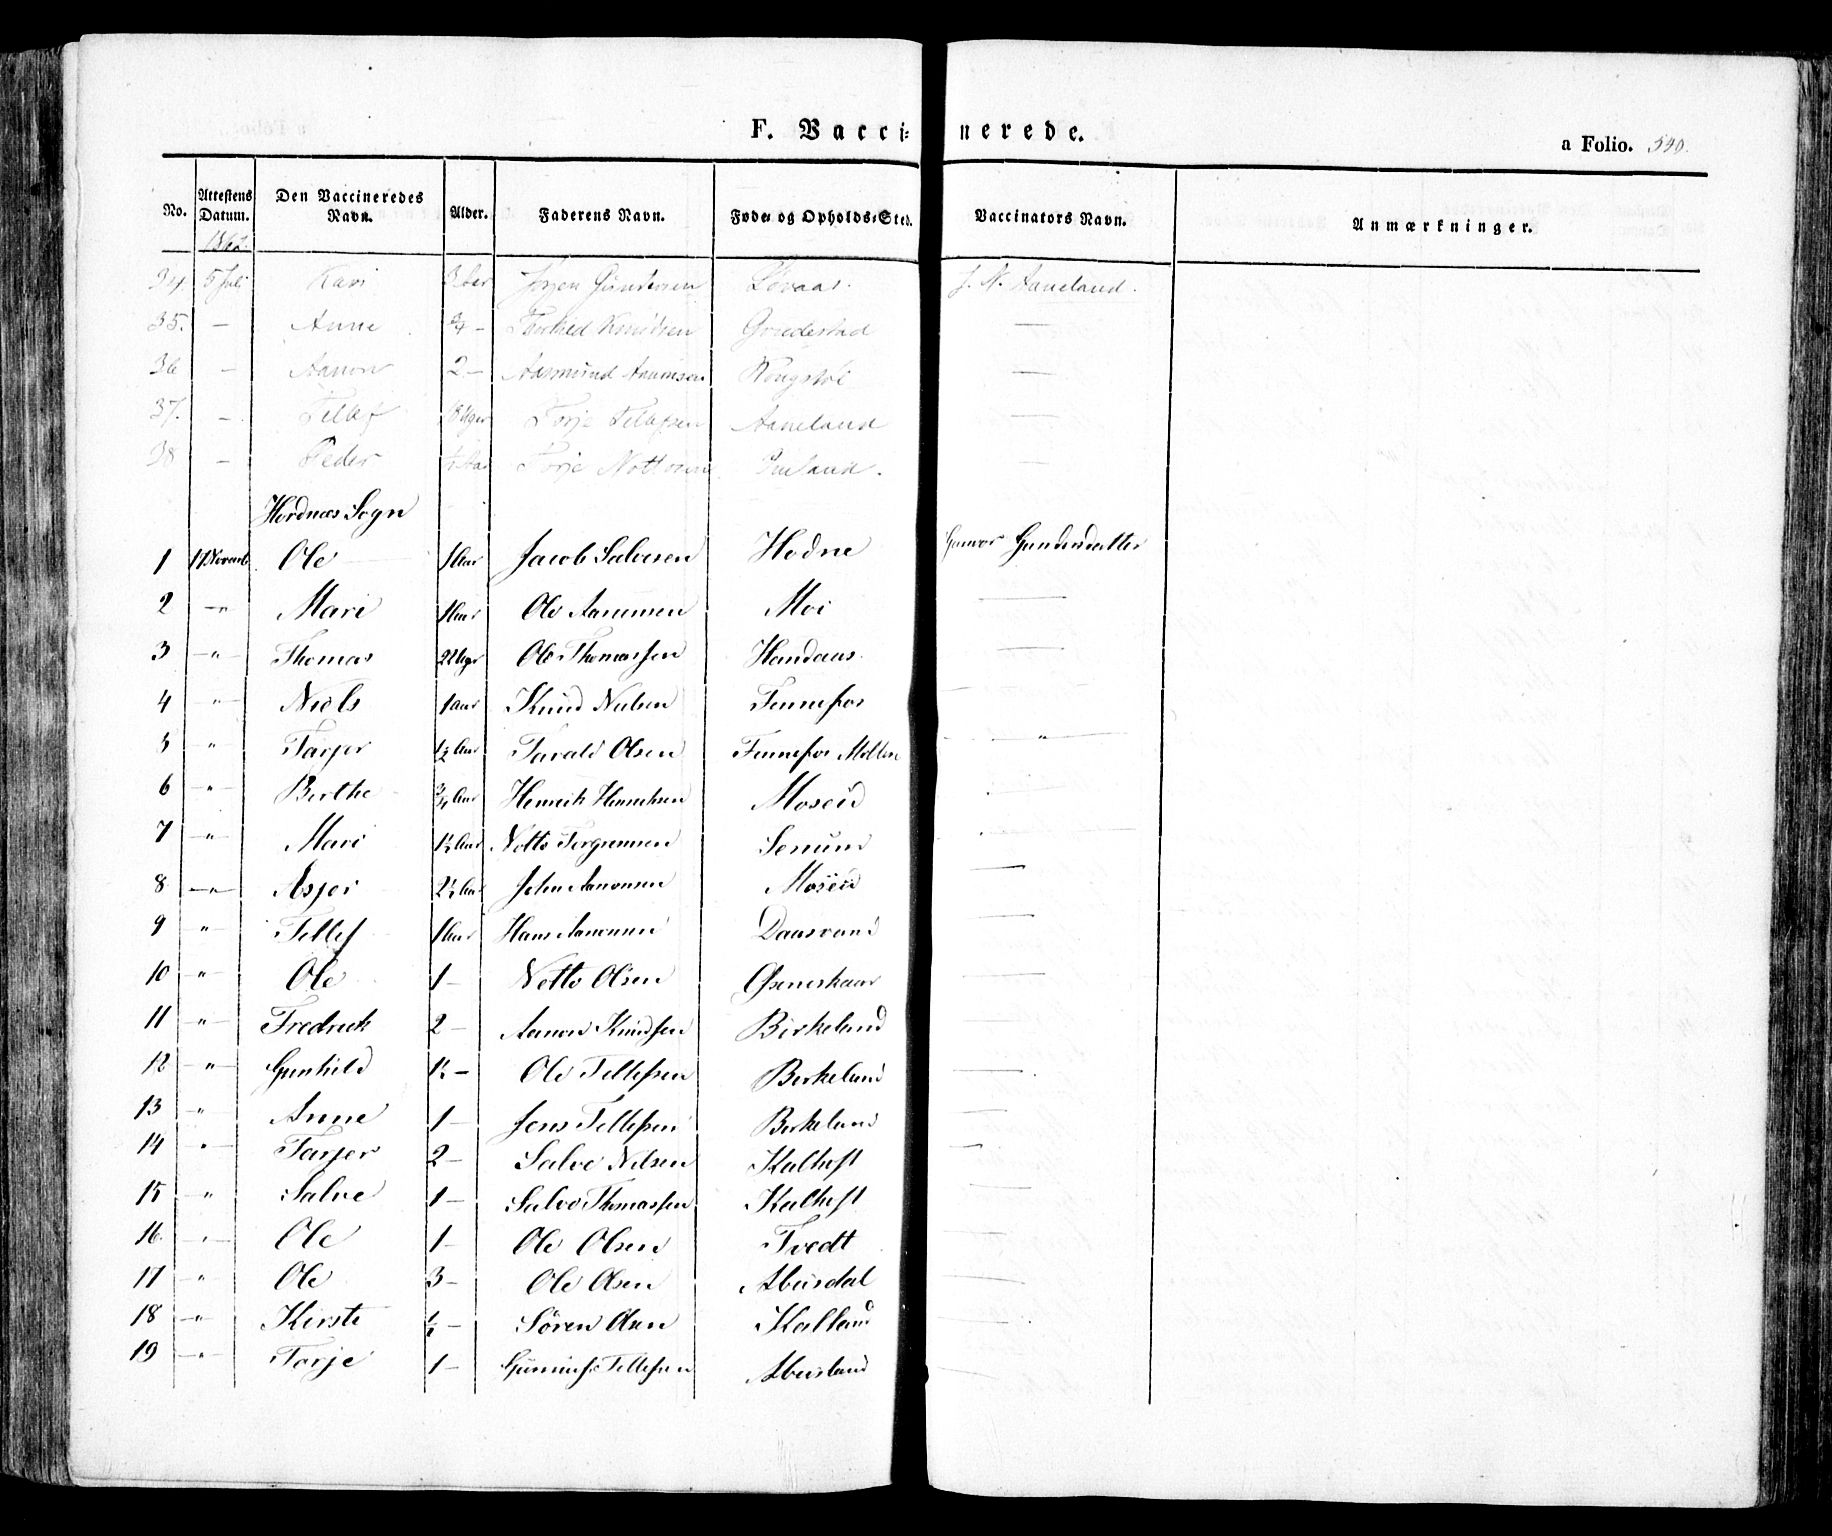 F. Vaccinerede.
a Folio. 540.
No. Attestens Datum. Den Vaccineredes Navn. Alder. Faderens Navn. Føde- og Opholds-Sted. Vaccinators Navn. Anmærkninger.
1862.
34. 5 Juli Kari 3 Aar Jørgen Gundersen Løvaas. J. N. Aaneland.
35. — Anne ¾ — Torkild Knudsen Grødestad —
36 — Aanon 2 — Aasmund Aanonsen —
37. — Tellef 18 Uger Torje Tellefsen Aaneland —
38 — Peder Torje Nottosen —
Hordnæs Sogn
1 1 Novemb. Ole 1 Aar Jacob Salvesen Hodne Gunvor Gundersdatter
2 —"— Mari 1 Aar Ole Aanonsen Moi —
3 —"— Thomas 22 Uger Ole Thomassen Handaas —
4 —"— Niels 1 Aar Knud Nielsen Fennefos —
5 " Tarjer 1½ Aar Tarald Olsen Fennefos Mollen — " —
6 " Berthe ¾ Aar Henrik Henriksen Moseid
7 —"— Mari 1½ Aar Notto Torgrimsen Senum
8 —"— Asjer 2½ Aar John Aanonsen Moseid —
9 " Tellef 1 Aar Hans Aanonsen Daasvand —
10 —"— Ole 1 — Notto Olsen —
11 —"— Fredrik 2 — Aanon Knudsen Birkeland —
12 —"— Gunhild 1½ — Ole Tellefsen Birkeland —
13 " Anne 1 — Jens Tellefsen Birkeland —
14 " Tarjer 2 — Salve Nilsen Kalheft —
15 " Salve 1 — Salve Thomassen Kalheft —
16. " Ole 1 — Ole Olsen Tvedt
17 —"— Ole 3 — Ole Olsen Abusdal —
18 —"— Kirsti ½ — Søren Olsen Kalland —
19 —"— Torje 1 — Gunnuf Tellefsen Abusland —